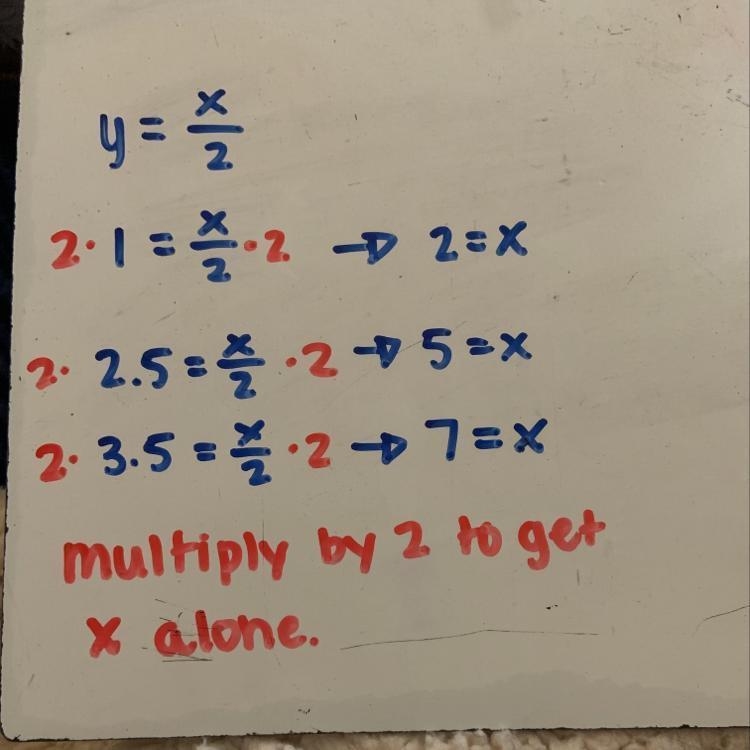 y = x/2
2 · 1 = x/2 · 2 → 2 = x
2 · 2.5 = x/2 · 2 → 5 = x
2 · 3.5 = x/2 · 2 → 7 = x
multiply by 2 to get
x alone.